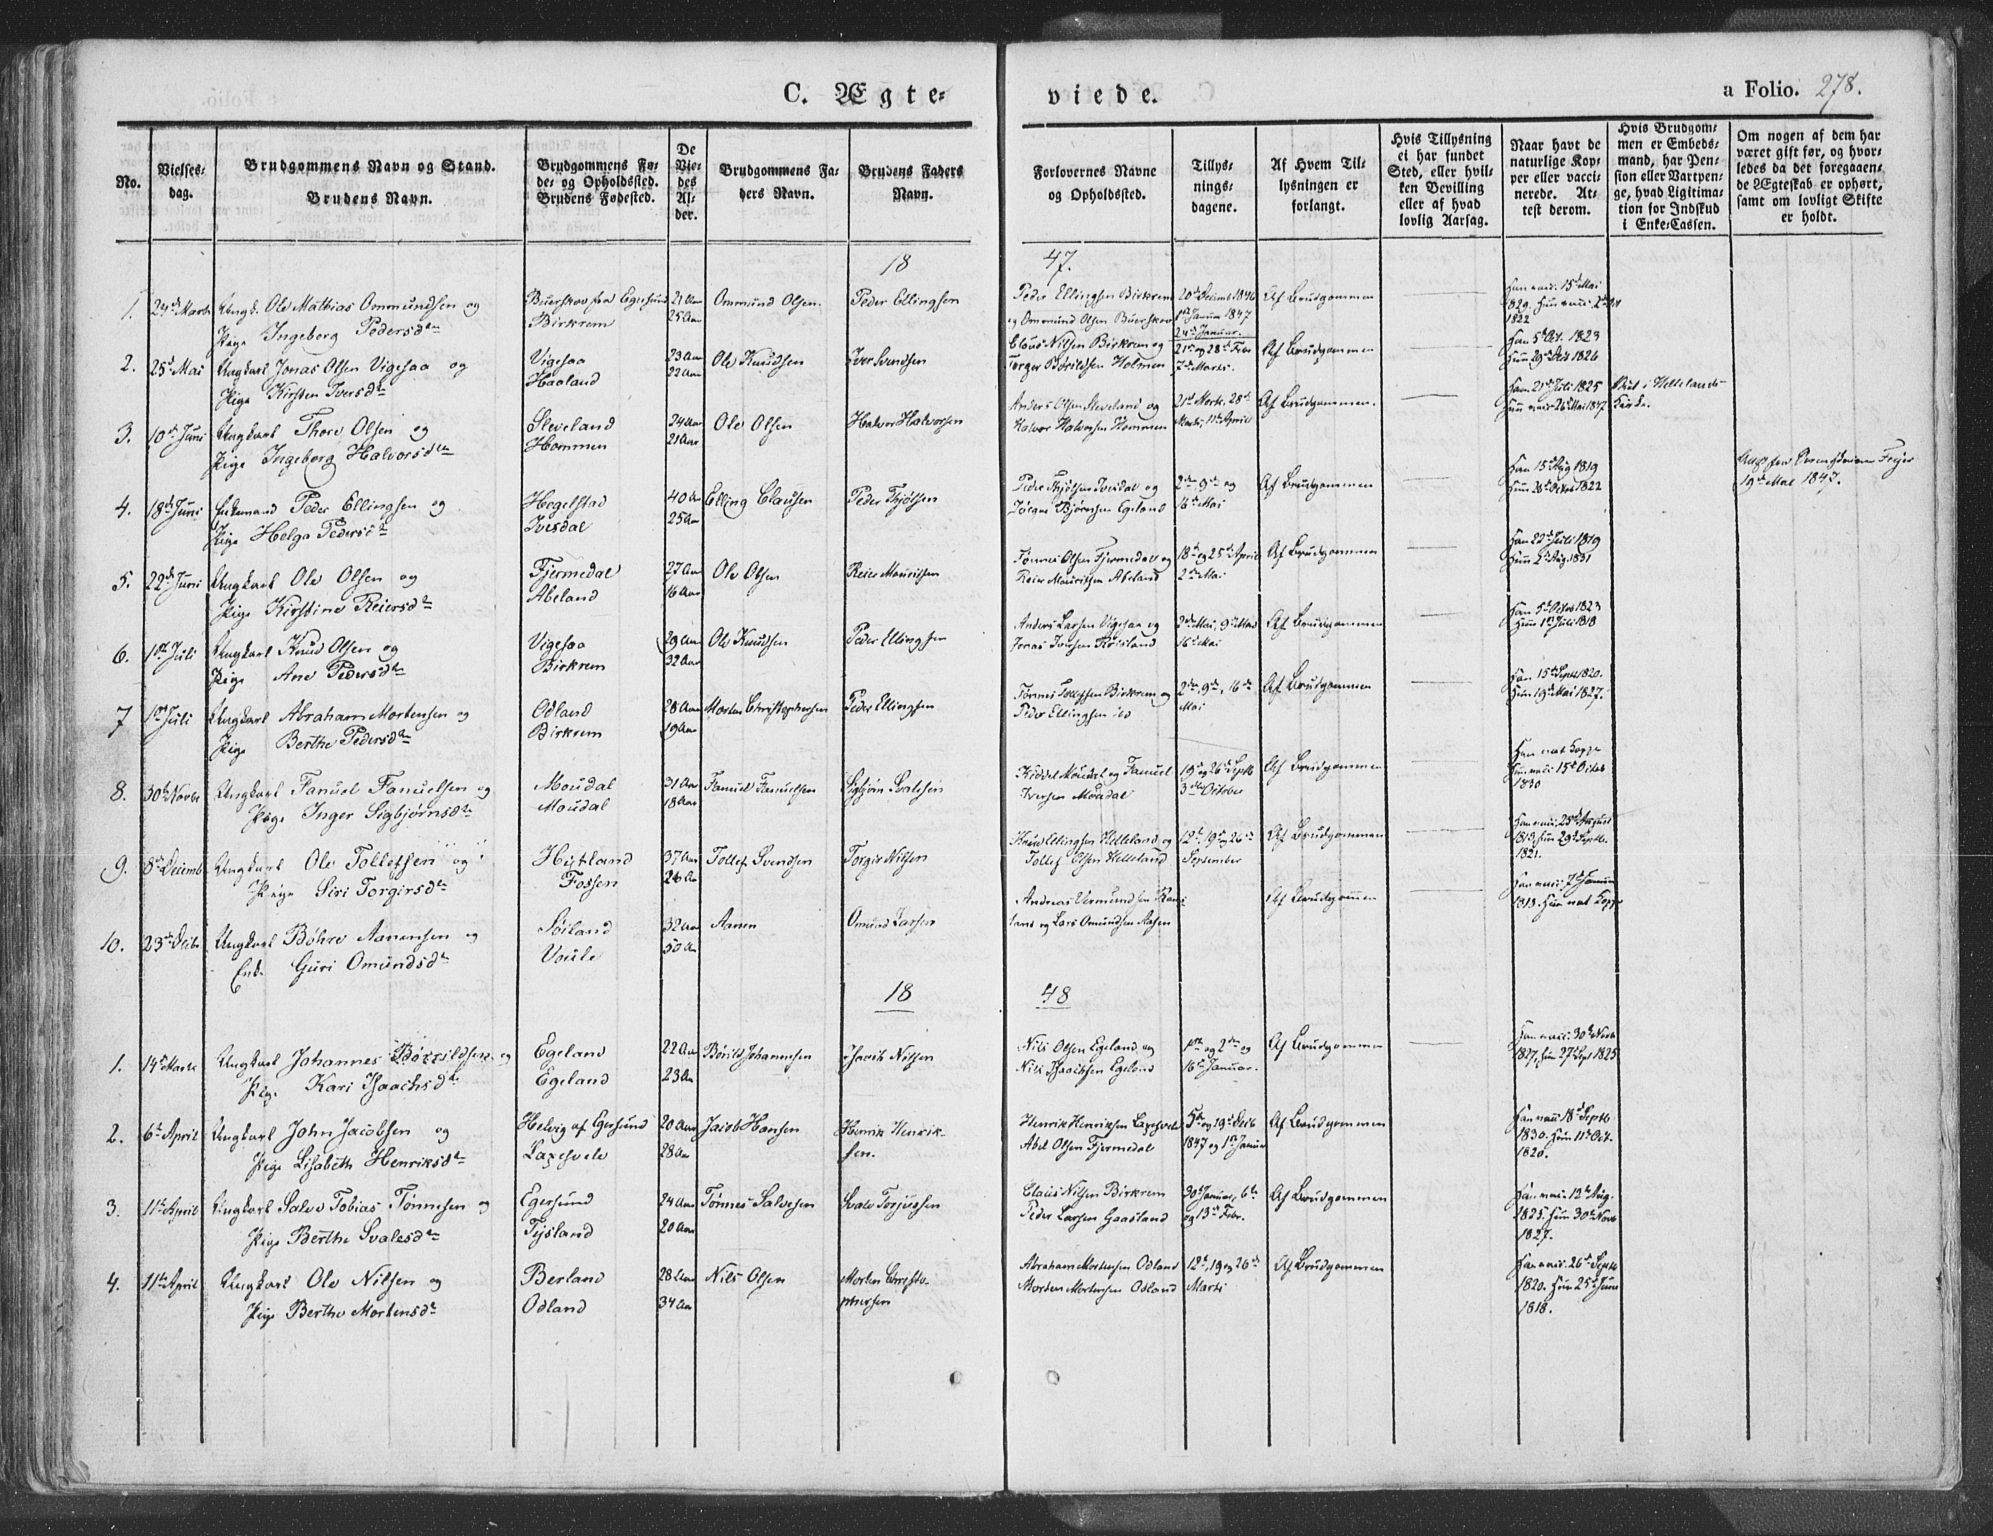 C. Ægte-
viede.
a Folio. 278.
No.
Vielses-
dag.
Brudgommens Navn og Stand.
Brudens Navn.
Brudgommens Fø-
de- og Opholdssted.
Brudens Fødested.
De
Vie-
des
Al-
der.
Brudgommens Fa-
ders Navn.
Brudens Faders
Navn.
Forlovernes Navne
og Opholdssted.
Tillys-
nings-
dagene.
Af Hvem Til-
lysningen er
forlangt.
Hvis Tillysning
ei har fundet
Sted, eller hvil-
ken Bevilling
eller af hvad
lovlig Aarsag.
Naar havt de
naturlige Kop-
per eller vacci-
nerede. At-
test derom.
Hvis Brudgom-
men er Embeds-
mand, har Pen-
sion eller Vartpen-
ge, hvad Ligitima-
tion for Indskud
i Enke-Cassen.
Om nogen af dem har
været gift før, og hvor-
ledes da det foregaaen-
de Ægteskab er ophørt,
samt om lovligt Skifte
er holdt.
18 47.
1. 24de Marts Ungk. Ole Mathias Ommundsen og Buerskov fra Egersund 21 Aar Ommund Olsen Peder Ellingsen Peder Ellingsen Birkrem 20de Decemb 1846 Af Brudgommen Han vacc. 15de Mai
Pige Ingeborg Pedersdtr Birkrem 25 Aar og Ommund Olsen Buerskov 1ste Januar 1847 1829. Hun vacc. 2de
24de Januar. 1822
2. 25de Mai Ungkarl Jonas Olsen Vigesaa og Vigesaa 23 Aar Ole Knudsen Iver Svendsen Claus Nilsen Birkrem og 21de og 28de Febr Af Brudgommen Han 5te Oct. 1823
Pige Kirsten Iversdtr Haaland 22 Aar Torger Børildsen Holmen 7de Marts. Hun 29de Dec 1826
3. 10de Juni Ungkarl Thore Olsen og Sleveland 24 Aar Ole Olsen Halvor Halvorsen Anders Olsen Sleveland og 21de Marts, 28de Af Brudgommen. Han 21de Juli 1825 i Hellelands
Pige Ingeborg Halvorsdtr Hommen 21 Aar Halvor Halvorsen Hommen Marts, 11te April Hun vacc 26de Mai 1847 Kirke.
4. 18de Juni Enkemand Peder Ellingsen og Hegelstad 40 Aar Elling Clausen Peder Thjøtsen Peder Thjøtsen Ivesdal og 2den 9de og Af Brudgommen Han 15de Aug 1819
Pige Helga Pedersdtr Ivesdal 25 Aar Bjørnsen Egeland 16de Mai Hun 28de Octob 1822 19de Mai 1847.
5. 22de Juni Ungkarl Ole Olsen og Fjermedal 27 Aar Ole Olsen Reier Mauritsen Tønnes Olsen Fjermedal og 18de og 25de April Af Brudgommen Han 22de Juli 1819
Pige Kirstine Reiersdtr Abeland 16 Aar Reier Mauritsen Abeland 2den Mai Hun 2de Aug 1831
6. 1ste Juli Ungkarl Knud Olsen og Vigesaa 29 Aar Ole Knudsen Peder Ellingsen Anders Larsen Vigesaa og 2den Mai, 9de Mai Af Brudgommen Han 5te Octob 1823
Pige Ane Pedersdtr Birkrem 32 Aar Jonas Iversen Røisland 16de Mai Hun 1ste Juli 1818
7 1ste Juli Ungkarl Abraham Mortensen og Odland 28 Aar Morten Christophersen Peder Ellingsen Tønnes Tollefsen Birkrem og 2den, 9de, 16de Af Brudgommen Han 15de Septb 1820.
Pige Berthe Pedersdtr Birkrem 19 Aar Peder Ellingsen ibd Mai Hun 19de Mai 1827.
8. 30te Novbr Ungkarl Fanuel Fanuelsen og Moudal 31 Aar Fanuel Fanuelsen Sigbjørn Svalesen Kiddel Moudal og Fanuel 19de og 26de Septb Af Brudgommen Han nat Kopper
Pige Inger Sigbjørnsdtr Moudal 18 Aar Iversen Moudal 3die October Hun vacc 15de Octob
1830
9. 8de Decemb Ungkarl Ole Tollefsen og Hustland 37 Aar Tollef Svendsen Torgir Nilsen Knud Ellingsen Helleland og 12te, 19de og 26de Af Brudgommen Han vacc. 25de August
Pige Siri Torgirsdtr Fossen 26 Aar Tollef Olsen Helleland September 1813. Hun 29de Septb.
1821.
10. 23de Decbr Ungkarl Bøhre Aanensen og Søiland 32 Aar Aanen Omund Larsen Andreas Omundsen Af Brudgommen Han vacc. 7de Januar
Enk. Guri Omundsdtr Voule 50 Aar og Lars Omundsen Aasen 1813. Hun nat Kopper
18 48
1. 14de Marts Ungkarl Johannes Børrildsen og Egeland 22 Aar Børild Johannesen Isaach Nilsen Nils Olsen Egeland og 1ste og 2den og Af Brudgommen Han vacc. 30te Novb
Pige Kari Isaachsdtr Egeland 23 Aar Nils Isaachsen Egeland 16de Januar. 1827, Hun 27de Sept 1825
2. 6te April Ungkarl John Jacobsen og Helvig af Egersund 20 Aar Jacob Hansen Henrik Henrik- Henrik Henriksen Laxesvele 5te og 19de Decb Af Brudgommen Han vacc 18de Septb
Pige Lisabeth Henriksdtr Laxesvele 28 Aar sen. Abel Olsen Fjermedal 1847 og 1ste Januar 1830. Hun 11te Oct.
1820.
3. 11te April Ungkarl Salve Tobias Tønnesen og Egersund 24 Aar Tønnes Salvesen Svale Torjusen Claus Nilsen Birkrem 30te Januar, 6te Af Brudgommen Han vacc. 12te Aug.
Pige Berthe Svalesdtr Tjsland 20 Aar Peder Larsen Gaasland og 13de Febr. 1825. Hun 30te Novb
1827.
4. 11te April Ungkarl Ole Nilsen og Berland 28 Aar Nils Olsen Morten Christo- Abraham Mortensen Odland 12te, 19 og 26de Af Brudgommen Han vacc. 26de Septb
Pige Berthe Mortensdtr Odland 34 Aar phersen Morten Mortensen Odland Marts 1820. Hun 25de Juni
1818.